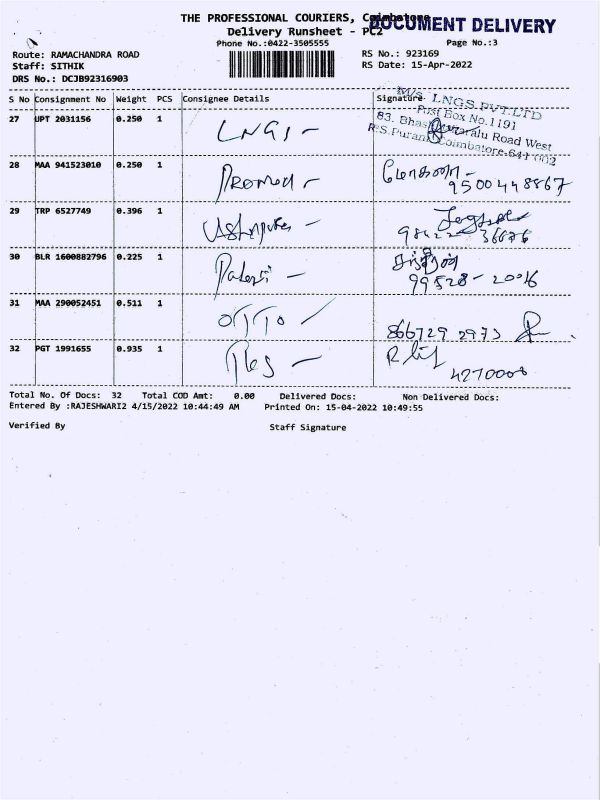 THE PROFESSIONAL COURIERS, Coimbatore
DOCUMENT DELIVERY
Delivery Runsheet - PC2
Phone No.:0422-3505555
Page No.:3
Route: RAMACHANDRA ROAD
RS No.: 923169
Staff: SITHIK
RS Date: 15-Apr-2022
DRS No.: DCJB92316903
S No Consignment No Weight PCS Consignee Details Signature
M/s. LNGS PVT. LTD
Post Box No.1191
83. Road West
R.S.Puram Coimbatore-641 002
27 UPT 2031156 0.250 1 LNGS
28 MAA 941523010 0.250 1
9500448867
29 TRP 6527749 0.396 1
98422 36676
30 BLR 1600882796 0.225 1
99528-20016
31 MAA 290052451 0.511 1 OTTO
866729 2973
32 PGT 1991655 0.935 1
4270008
Total No. Of Docs: 32 Total COD Amt: 0.00 Delivered Docs: Non Delivered Docs:
Entered By :RAJESHWARI2 4/15/2022 10:44:49 AM Printed On: 15-04-2022 10:49:55
Verified By Staff Signature